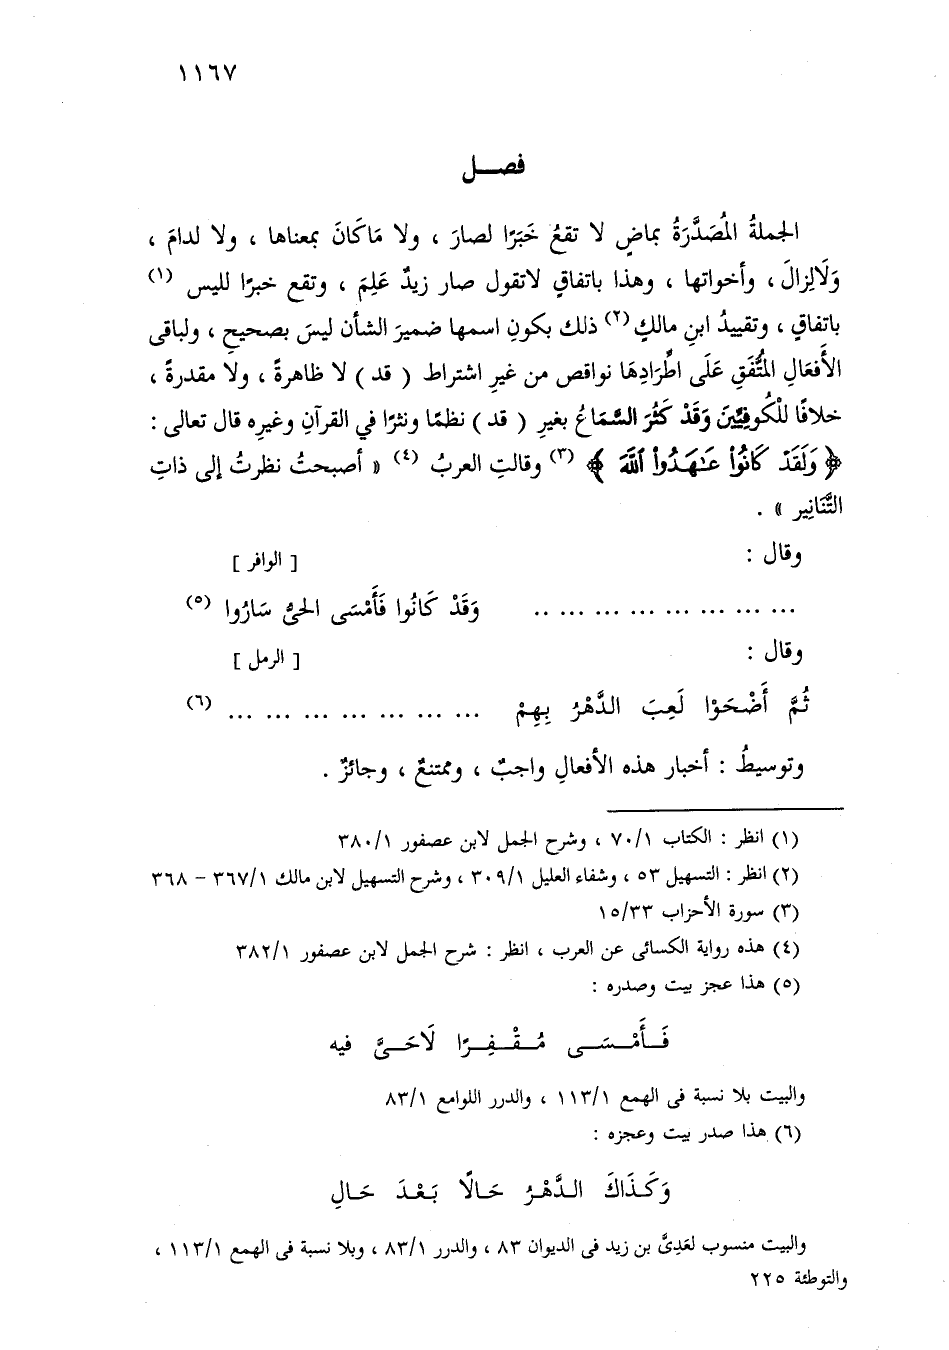 ١١٦٧
فصـــل
الجملةُ المُصَدَّرَةُ بماضٍ لا تقعُ خَبَرًا لصارَ ، ولا مَاكَانَ بمعناها ، ولا لدامَ ،
وَلَالِزالَ ، وأخواتها ، وهذا باتفاقٍ لاتقول صار زيدٌ عَلِمَ ، وتقع خبرًا لليس (١)
باتفاقٍ ، وتقييدُ ابنِ مالكٍ (٢) ذلك بكونِ اسمها ضميرَ الشأن ليسَ بصحيحٍ ، ولباقى
الأَفعَالِ المُتَّفَقِ عَلَى اطِّرادِهَا نواقص من غيرِ اشتراط ( قد ) لا ظاهرةً ، ولا مقدرةً ،
خلافًا للْكُوفِيِّينَ وَقَدْ كَثُرَ السَّماعُ بغيرِ ( قد ) نظمًا ونثرًا في القرآنِ وغيرِه قال تعالى :
﴿ وَلَقَدْ كَانُوا۟ عَـٰهَدُوا۟ ٱللَّهَ ﴾ (٣) وقالتِ العربُ (٤) « أصبحتُ نظرتُ إلى ذاتِ
التَّنَانِير » .
وقال : [ الوافر ]
... ... ... ... ... ... ... .. وَقَدْ كَانُوا فَأَمْسَى الحىُّ سَارُوا (٥)
وقال : [ الرمل ]
ثُمَّ أَضْحَوْا لَعِبَ الدَّهْرُ بِهِمْ ... ... ... ... ... ... ... (٦)
وتوسيطُ : أخبار هذه الأفعالِ واجبٌ ، وممتنعٌ ، وجائزٌ .
(١) انظر : الكتاب ٧٠/١ ، وشرح الجمل لابن عصفور ٣٨٠/١
(٢) انظر : التسهيل ٥٣ ، وشفاء العليل ٣٠٩/١ ، وشرح التسهيل لابن مالك ٣٦٧/١ – ٣٦٨
(٣) سورة الأحزاب ١٥/٣٣
(٤) هذه رواية الكسائى عن العرب ، انظر : شرح الجمل لابن عصفور ٣٨٢/١
(٥) هذا عجز بيت وصدره :
فَـأَمْـسَـى مُـقْـفِـرًا لَاحَـىَّ فيه
والبيت بلا نسبة فى الهمع ١١٣/١ ، والدرر اللوامع ٨٣/١
(٦) هذا صدر بيت وعجزه :
وَكَـذَاكَ الـدَّهْـرُ حَـالًا بَـعْـدَ حَـالِ
والبيت منسوب لعَدِىَّ بن زيد فى الديوان ٨٣ ، والدرر ٨٣/١ ، وبلا نسبة فى الهمع ١١٣/١ ،
والتوطئة ٢٢٥